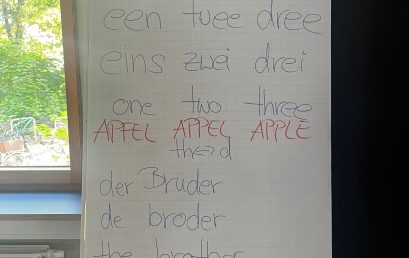 een twee dree
eins zwei drei
one two three
APFEL APPEL APPLE
th↔d
der Bruder
de broder
the brother